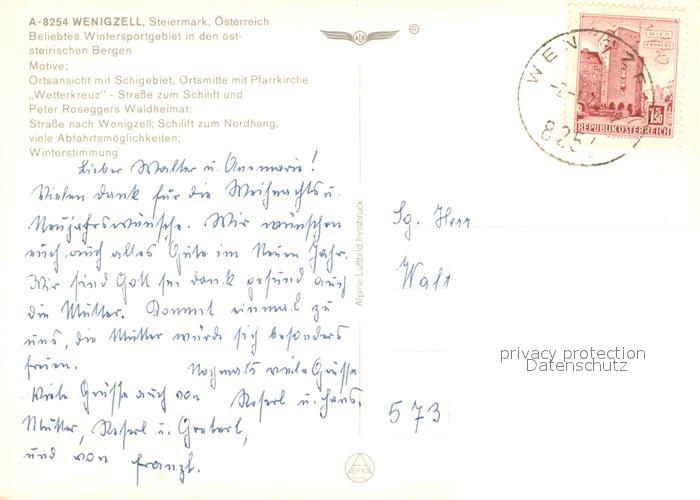 A-8254 WENIGZELL, Steiermark, Österreich
Beliebtes Wintersportgebiet in den ost-
steirischen Bergen
Motive:
Ortsansicht mit Schigebiet, Ortsmitte mit Pfarrkirche
„Wetterkreuz" - Straße zum Schilift und
Peter Roseggers Waldheimat;
Straße nach Wenigzell; Schilift zum Nordhang,
viele Abfahrtsmöglichkeiten;
Winterstimmung
Lieber Walter u. Annemarie!
Vielen dank für die Weihnachts u.
Neujahrswünsche. Wir wünschen
euch auch alles Gute im Neuen Jahr.
Wir sind Gott sei dank gesund auch
die Mutter. Kommt einmal zu
uns, die Mutter würde sich besonders
freuen.
Nochmals viele Grüsse
Viele Grüsse auch von Reserl u. Hans.
Mutter, Reserl u. Greterl,
und von Franzl.
Alpine Luftbild Innsbruck
®
WIEN
ERDBERG
S 1.50
REPUBLIK ÖSTERREICH
8254
Sg. Herr
Walt
573
privacy protection
Datenschutz